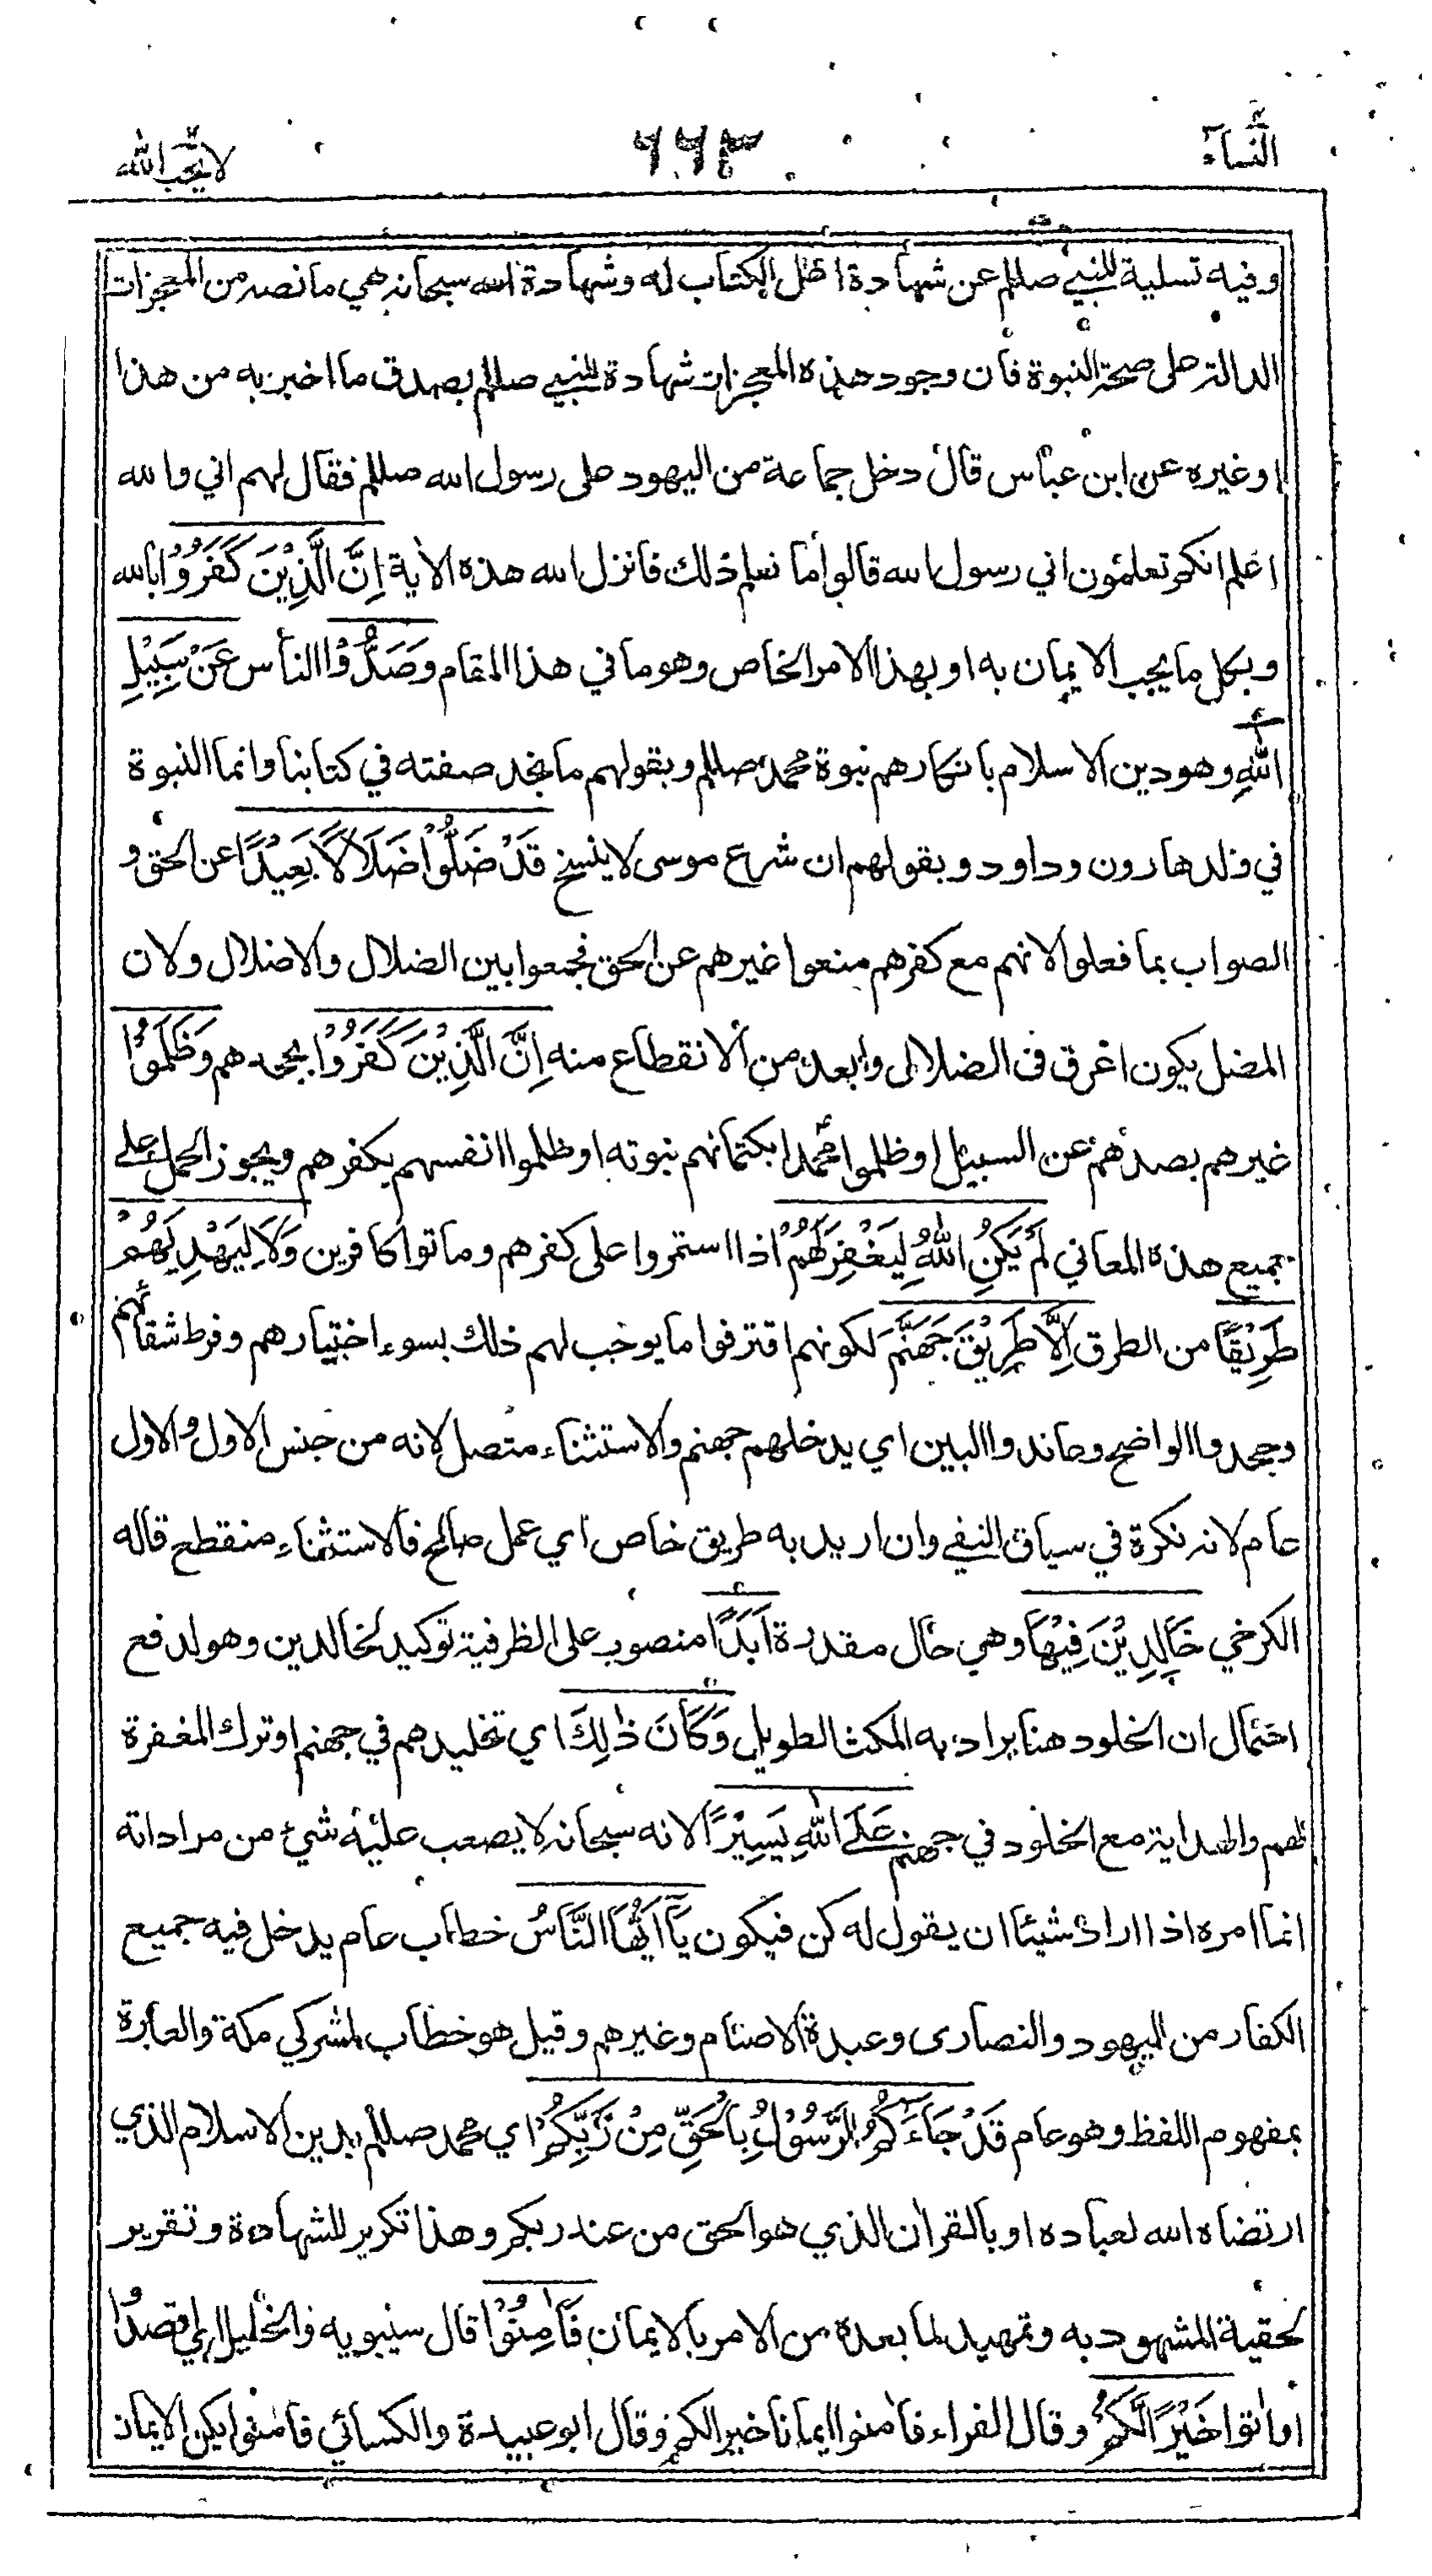 النساء ٦٦٣ لا يحب الله
وفيه تسلية للنبي صللم عن شهادة اهل الكتاب له وشهادة الله سبحانه هي ما نصبه من المعجزات
الدالة على صحة النبوة فان وجود هذه المعجزات شهادة للنبي صللم بصدق ما اخبر به من هذا
او غيره عن ابن عباس قال دخل جماعة من اليهود على رسول الله صللم فقال لهم اني والله
اعلم انكم تعلمون اني رسول الله قالوا ما نعلم ذلك فانزل الله هذه الاٰية اِنَّ الَّذِيْنَ كَفَرُوْا بالله
وبكل ما يجب الايمان به او بهذا الامر الخاص وهو ما في هذا المقام وَصَدُّوْا الناس عَنْ سَبِيْلِ
اللهِ وهو دين الاسلام بانكارهم نبوة محمد صللم وبقولهم ما نجد صفته في كتابنا وانما النبوة
في ولد هارون وداود وبقولهم ان شرع موسى لا ينسخ قَدْ ضَلُّوْا ضَلَالًا بَعِيْدًا عن الحق و
الصواب بما فعلوا لانهم مع كفرهم منعوا غيرهم عن الحق فجمعوا بين الضلال والاضلال ولان
المضل يكون اغرق في الضلال وابعد من الانقطاع منه اِنَّ الَّذِيْنَ كَفَرُوْا بجحدهم وَظَلَمُوْا
غيرهم بصدهم عن السبيل او ظلموا محمدا بكتمانهم نبوته او ظلموا انفسهم بكفرهم ويجوز الحمل على
جميع هذه المعاني لَمْ يَكُنِ اللهُ لِيَغْفِرَ لَهُمْ اذا استمروا على كفرهم وماتوا كافرين وَلَا لِيَهْدِيَهُمْ
طَرِيْقًا من الطرق اِلَّا طَرِيْقَ جَهَنَّمَ لكونهم اقترفوا ما يوجب لهم ذلك بسوء اختيارهم وفرط شقائهم
وجحدوا الواضح وعاندوا البين اي يدخلهم جهنم والاستثناء متصل لانه من جنس الاول والاول
عام لانه نكرة في سياق النفي وان اريد به طريق خاص اي عمل صالح فالاستثناء منقطع قاله
الكرخي خَالِدِيْنَ فِيْهَا وهي حال مقدرة اَبَدًا منصوب على الظرفية توكيد لخالدين وهو لدفع
احتمال ان الخلود هنا يراد به المكث الطويل وَكَانَ ذٰلِكَ اي تخليدهم في جهنم او ترك المغفرة
لهم والهداية مع الخلود في جهنم عَلَى اللهِ يَسِيْرًا لانه سبحانه لا يصعب عليه شيء من مراداته
انما امره اذا اراد شيئا ان يقول له كن فيكون يَآ اَيُّهَا النَّاسُ خطاب عام يدخل فيه جميع
الكفار من اليهود والنصارى وعبدة الاصنام وغيرهم وقيل هو خطاب لمشركي مكة والعبرة
بمفهوم اللفظ وهو عام قَدْ جَآءَكُمُ الرَّسُوْلُ بِالْحَقِّ مِنْ رَّبِّكُمْ اي محمد صللم بدين الاسلام الذي
ارتضاه الله لعباده او بالقراٰن الذي هو الحق من عند ربكم وهذا تكرير للشهادة وتقرير
لحقية المشهود به وتمهيد لما بعده من الامر بالايمان فَاٰمِنُوْا قال سيبويه والخليل اي اقصدوا
او اٰتوا خَيْرًا لَّكُمْ وقال الفراء فاٰمنوا ايمانا خيرا لكم وقال ابو عبيدة والكسائي فاٰمنوا يكن الايمان